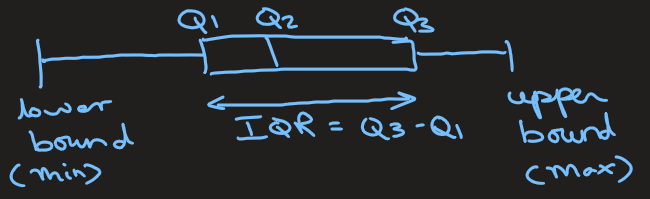 Q1 Q2 Q3
lower
bound
(min)
IQR = Q3 - Q1
upper
bound
(max)